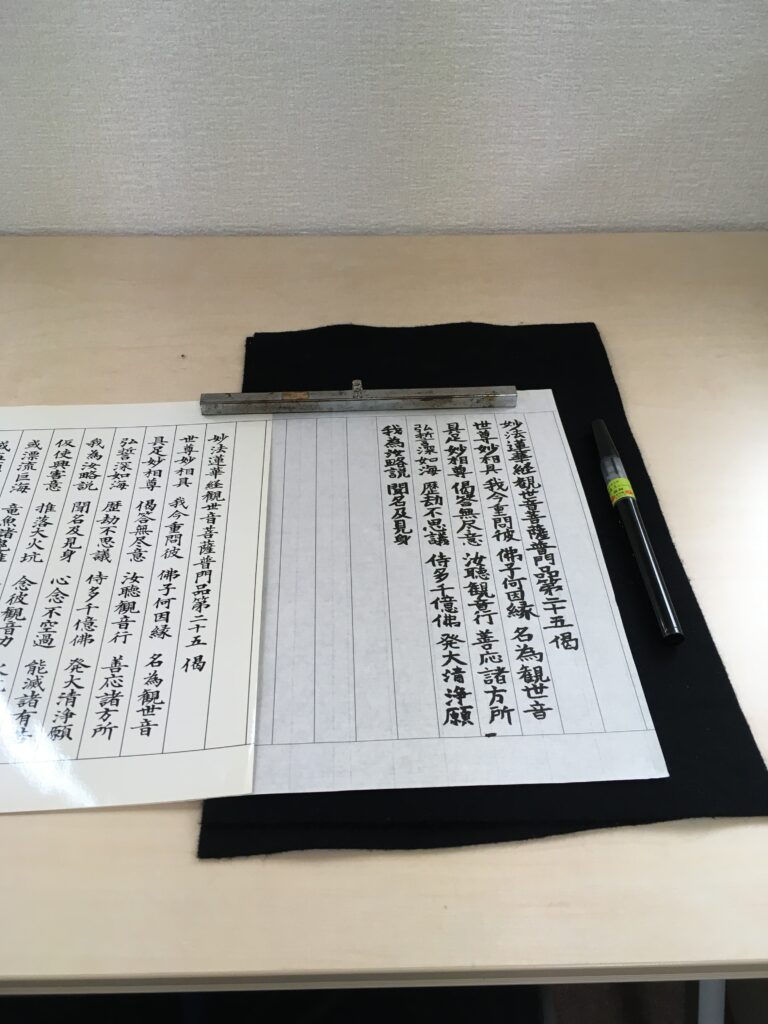 妙法蓮華経観世音菩薩普門品第二十五偈
世尊妙相具 我今重問彼 佛子何因縁 名為観世音
具足妙相尊 偈答無尽意 汝聴観音行 善応諸方所
弘誓深如海 歴劫不思議 侍多千億佛 発大清浄願
我為汝略説 聞名及見身
妙法蓮華経観世音菩薩普門品第二十五 偈
世尊妙相具 我今重問彼 佛子何因縁 名為観世音
具足妙相尊 偈答無尽意 汝聴観音行 善応諸方所
弘誓深如海 歴劫不思議 侍多千億佛 発大清浄願
我為汝略説 聞名及見身 心念不空過 能滅諸有
仮使興害意 推落大火坑 念彼観音力
或漂流巨海 竜魚諸鬼難